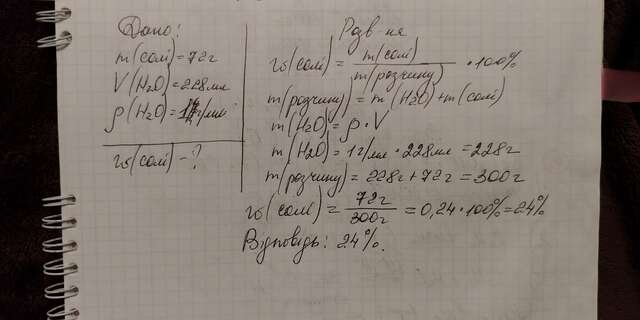 Дано:
m(солі)=72г
V(H₂O)=228мл
ρ(H₂O)=1г/мл
w(солі)-?
Розв-не
w(солі)=m(солі)/m(розчину)·100%
m(розчину)=m(H₂O)+m(солі)
m(H₂O)=ρ·V
m(H₂O)=1г/мл·228мл=228г
m(розчину)=228г+72г=300г
w(солі)=72г/300г=0,24·100%=24%
Відповідь: 24%.